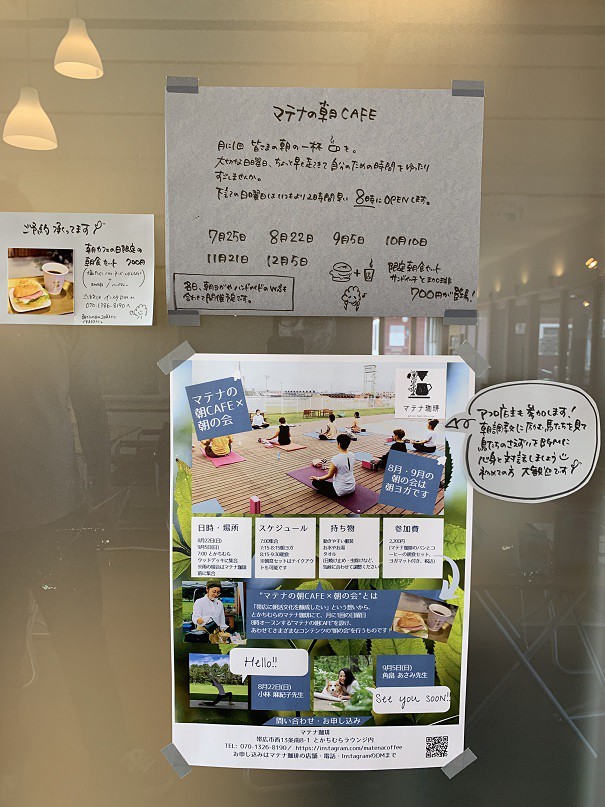 マテナの朝CAFE
月に1回 皆さまの朝の一杯 を。
大切な日曜日、ちょっと早起きして自分のための時間をゆったり
すごしませんか。
下記の日曜日はいつもより2時間早い 8時にOPENします。
7月25日 8月22日 9月5日 10月10日
11月21日 12月5日
限定朝食セット
サンドイッチとまめの珈琲
700円が登場!
各日、朝ヨガやハンドメイドのWSも
合わせて開催予定です。
ご予約承ってます
朝カフェの日限定の
朝食セット 700円
070-1326-8190へ
マテナの
朝CAFE×
朝の会
マテナ珈琲
8月・9月の
朝の会は
朝ヨガです
ヨガ店主も参加します!
心身と対話しましょう
初めての方 大歓迎です
日時・場所
8月22日(日)
9月5日(日)
7:00 とかちむら
ウッドデッキに集合
※雨の場合はマテナ珈琲
前に集合
スケジュール
7:00集合
7:15-8:15朝ヨガ
8:15-9:30朝食
※朝食セットはテイクアウ
トも可能です
持ち物
動きやすい服装
お水やお茶
タオル
(日焼け止め・虫除けなど、
気候に合わせて調整ください)
参加費
2,200円
(マテナ珈琲のパンとコ
ーヒーの朝食セット、
ヨガマット付き、税込)
"マテナの朝CAFE×朝の会"とは
「帯広に朝活文化を醸成したい」という想いから、
とかちむらのマテナ珈琲にて、月に1回の日曜日
8時オープンする"マテナの朝CAFE"を設け、
あわせてさまざまなコンテンツの"朝の会"を行うものです!
Hello!!
8月22日(日)
小林 麻紀子先生
9月5日(日)
角畠 あさみ先生
See you soon!!
問い合わせ・お申し込み
マテナ珈琲
帯広市西13条南8-1 とかちむらラウンジ内
TEL: 070-1326-8190/ https://instagram.com/matenacoffee
お申し込みはマテナ珈琲の店舗・電話・InstagramのDMまで